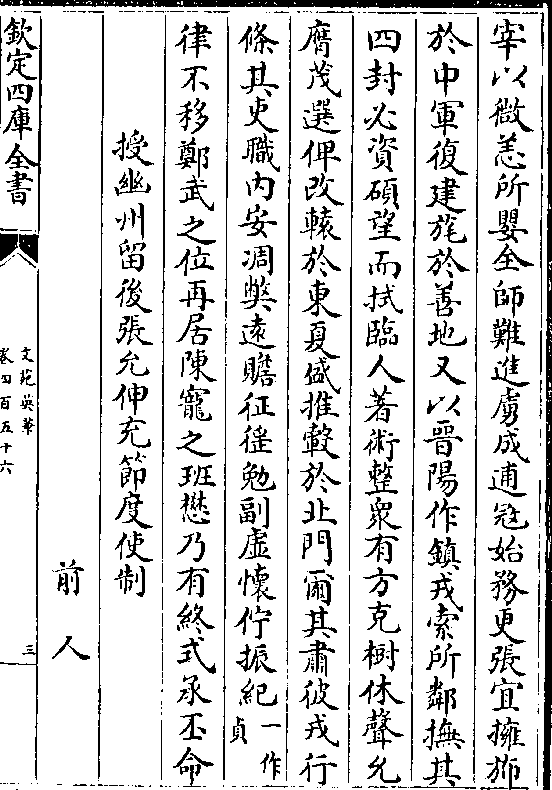 宰以微恙所嬰全師難進虜成逋寇始務更張宜擁斾
於中軍復建旄於善地又以晉陽作鎮戎索所鄰撫其
四封必資碩望而拭臨人著術整衆有方克樹休聲允
膺茂選俾改轅於東夏盛推轂於北門爾其肅彼戎行
條其吏職内安凋獘遠贍征徭勉副虚懷佇振紀一作貞
律不移鄭武之位再居陳寵之班懋乃有終式承丕命
授幽州留後張允伸充節度使制
前人
欽定四庫全書
文苑英華
卷四百五十六
三